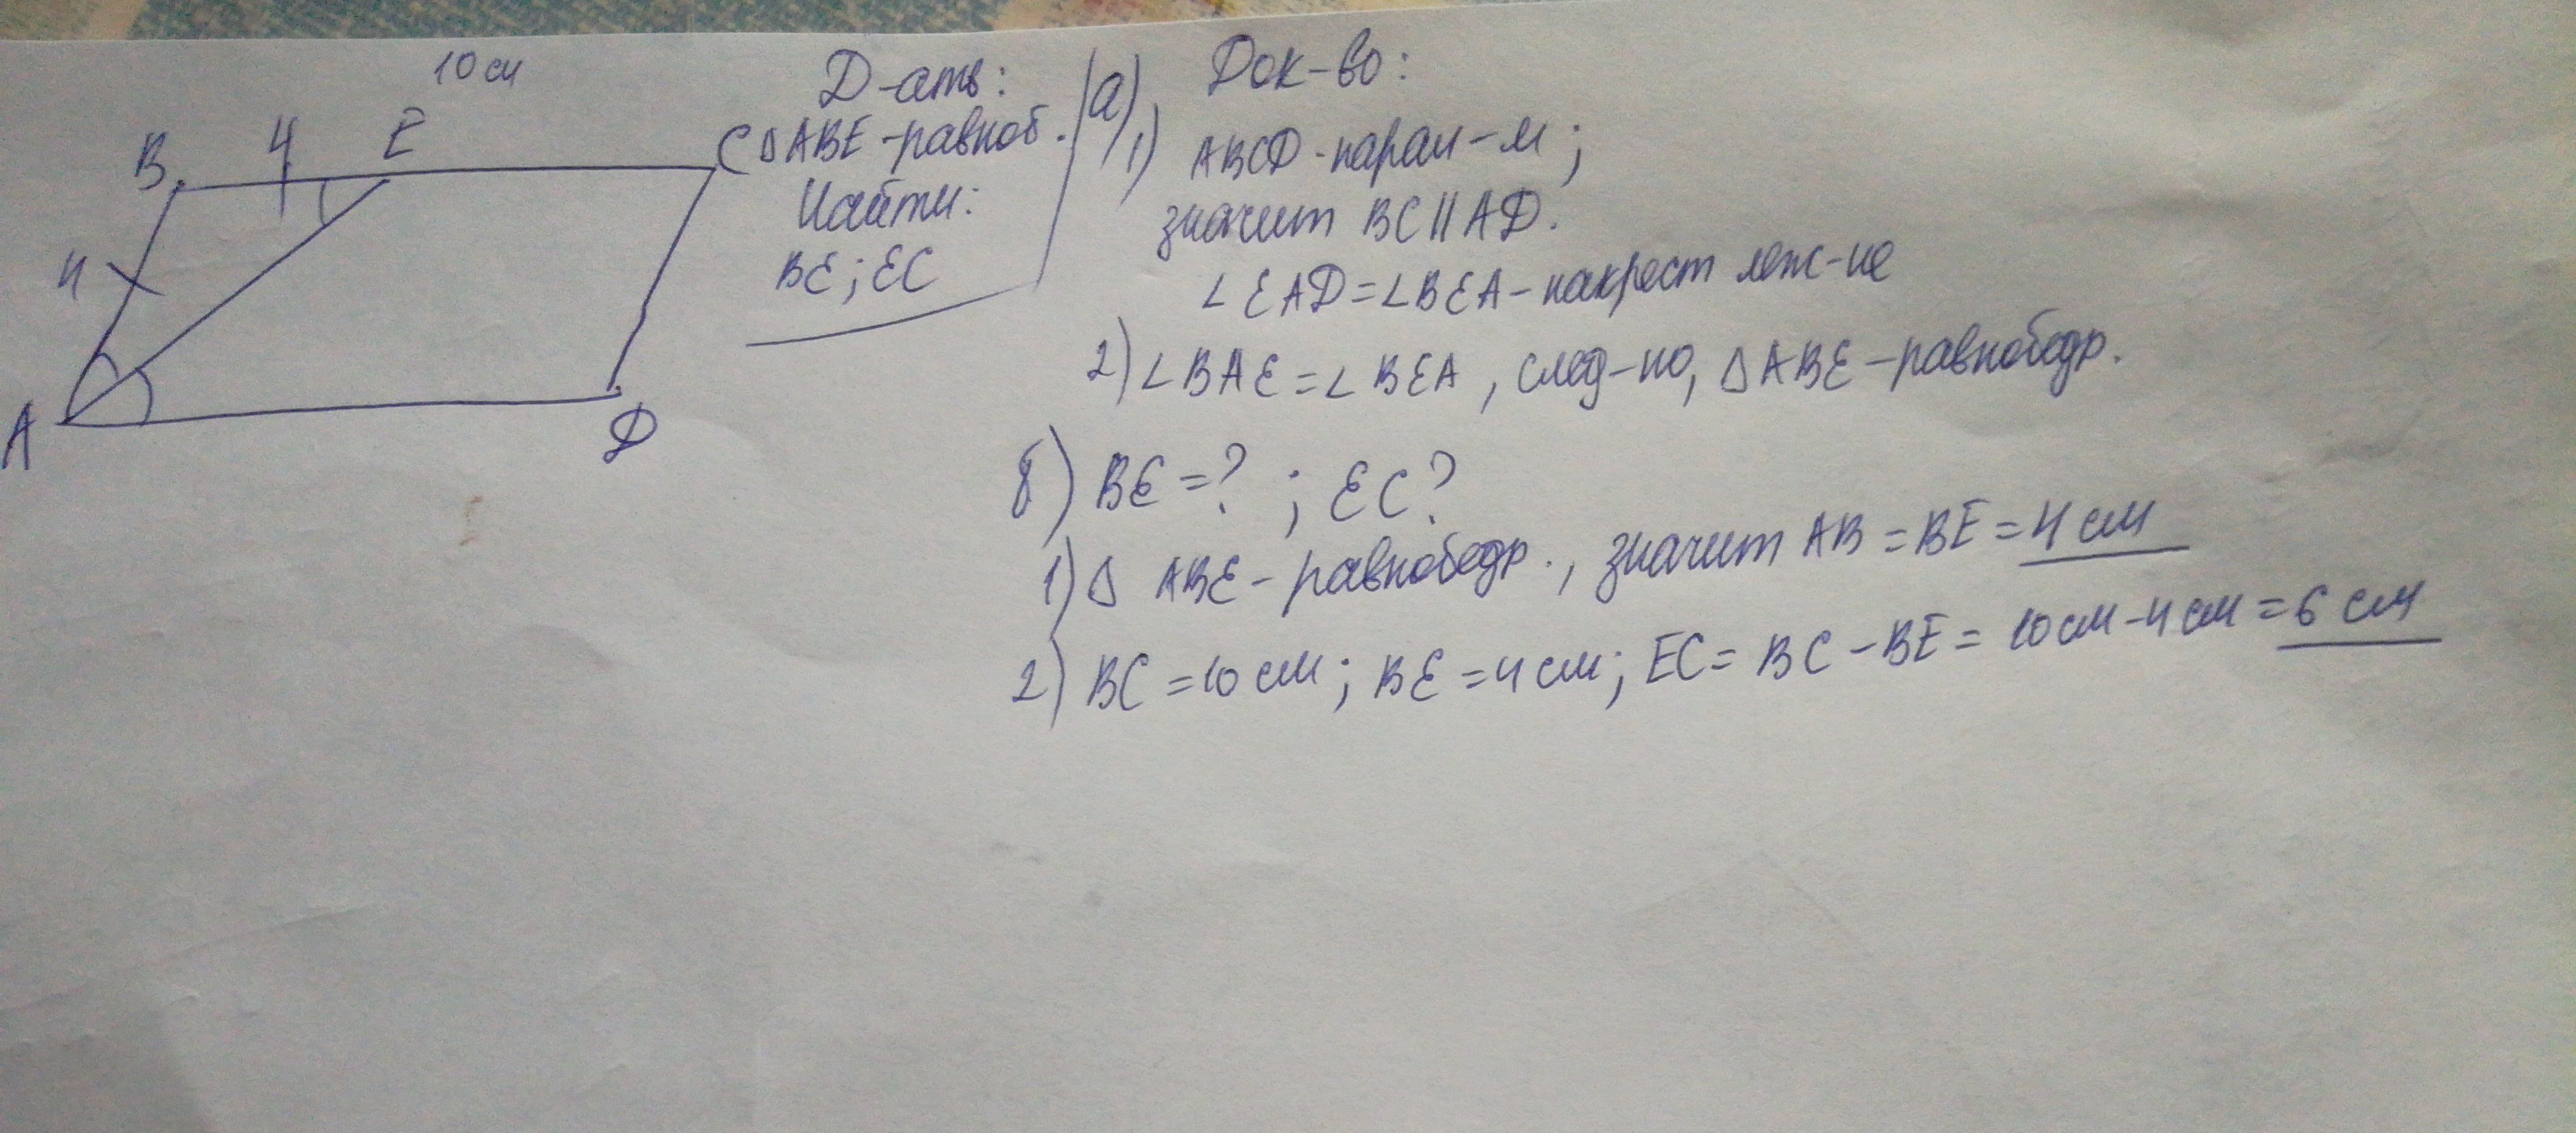 10 см
B 4 E C
4
A D
Д-ать:
△ABE-равноб.
Найти:
BE; EC
а) Док-во:
1) ABCD-парал-м;
значит BC∥AD.
∠EAD=∠BEA-накрест леж-ие
2) ∠BAE=∠BEA, след-но, △ABE-равнобедр.
б) BE=?; EC?
1) △ ABE-равнобедр., значит AB=BE=4 см
2) BC=10 см; BE=4 см; EC=BC-BE=10 см-4 см=6 см